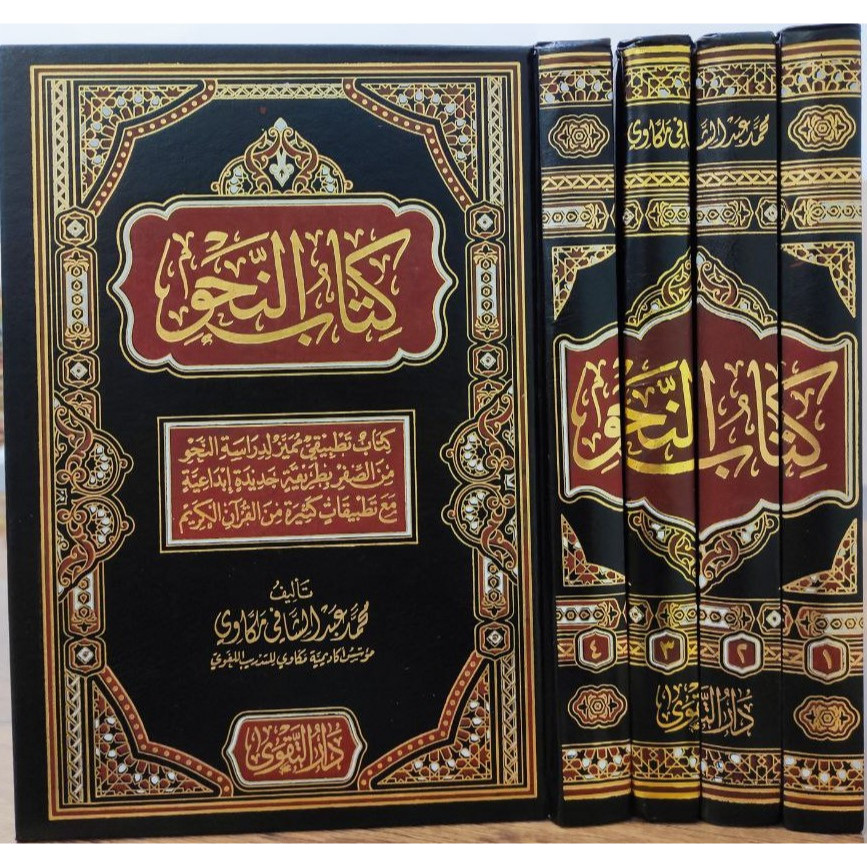 كِتَابُ النَّحْوِ
كِتَابٌ تَطْبِيقِيٌّ مُمَيَّزٌ لِدِرَاسَةِ النَّحْوِ
مِنَ الصِّفْرِ بِطَرِيقَةٍ جَدِيدَةٍ إِبْدَاعِيَّةٍ
مَعَ تَطْبِيقَاتٍ كَثِيرَةٍ مِنَ القُرْآنِ الكَرِيمِ
تَأليفُ
مُحَمَّد عَبْد الشَّافِي مَكَّاوِي
مؤسس أكاديمية مكاوي للتدريب اللغوي
دَارُ التَّقْوَى
مُحَمَّد عَبْد الشَّافِي مَكَّاوِي
كِتَابُ النَّحْوِ
١ ٢ ٣ ٤
دَارُ التَّقْوَى